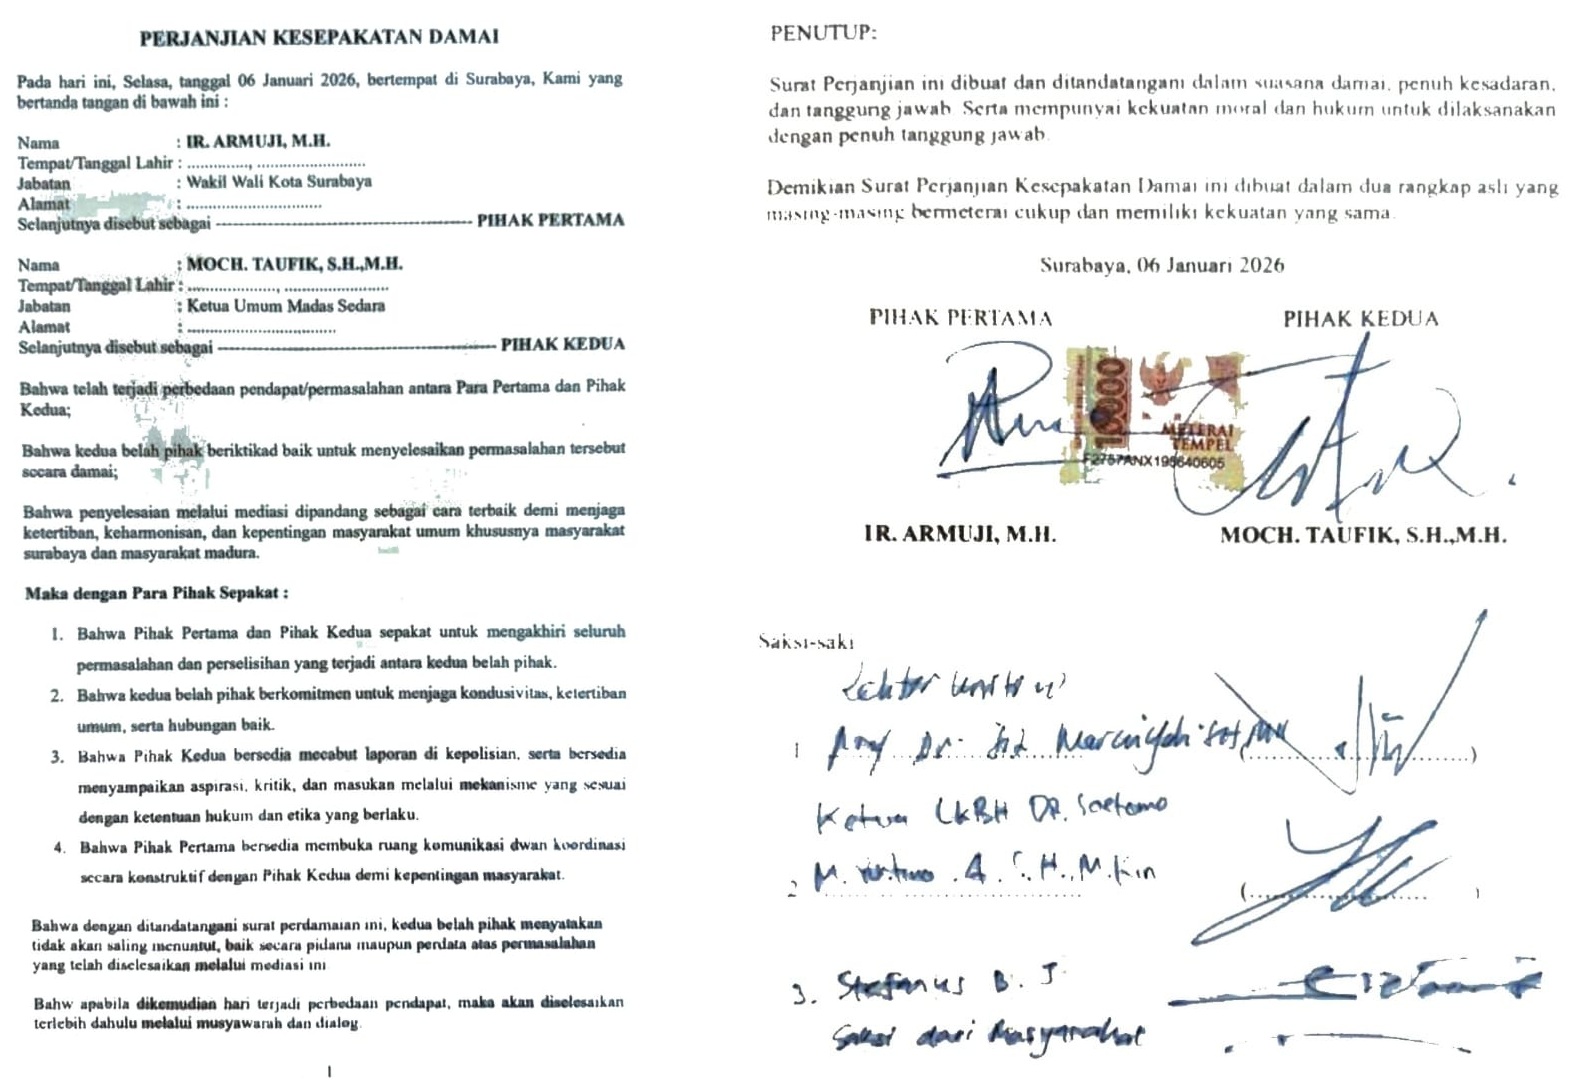 PERJANJIAN KESEPAKATAN DAMAI
Pada hari ini, Selasa, tanggal 06 Januari 2026, bertempat di Surabaya, Kami yang
bertanda tangan di bawah ini :
Nama : IR. ARMUJI, M.H.
Tempat/Tanggal Lahir : .............., ........................
Jabatan : Wakil Wali Kota Surabaya
Alamat : ..............................
Selanjutnya disebut sebagai ------------------------------------ PIHAK PERTAMA
Nama : MOCH. TAUFIK, S.H.,M.H.
Tempat/Tanggal Lahir : ....................., .......................
Jabatan : Ketua Umum Madas Sedara
Alamat : .................................
Selanjutnya disebut sebagai ---------------------------------------- PIHAK KEDUA
Bahwa telah terjadi perbedaan pendapat/permasalahan antara Para Pertama dan Pihak
Kedua;
Bahwa kedua belah pihak beriktikad baik untuk menyelesaikan permasalahan tersebut
secara damai;
Bahwa penyelesaian melalui mediasi dipandang sebagai cara terbaik demi menjaga
ketertiban, keharmonisan, dan kepentingan masyarakat umum khususnya masyarakat
surabaya dan masyarakat madura.
Maka dengan Para Pihak Sepakat :
1. Bahwa Pihak Pertama dan Pihak Kedua sepakat untuk mengakhiri seluruh
permasalahan dan perselisihan yang terjadi antara kedua belah pihak.
2. Bahwa kedua belah pihak berkomitmen untuk menjaga kondusivitas, ketertiban
umum, serta hubungan baik.
3. Bahwa Pihak Kedua bersedia mecabut laporan di kepolisian, serta bersedia
menyampaikan aspirasi, kritik, dan masukan melalui mekanisme yang sesuai
dengan ketentuan hukum dan etika yang berlaku.
4. Bahwa Pihak Pertama bersedia membuka ruang komunikasi dwan koordinasi
secara konstruktif dengan Pihak Kedua demi kepentingan masyarakat.
Bahwa dengan ditandatangani surat perdamaian ini, kedua belah pihak menyatakan
tidak akan saling menuntut, baik secara pidana maupun perdata atas permasalahan
yang telah diselesaikan melalui mediasi ini
Bahw apabila dikemudian hari terjadi perbedaan pendapat, maka akan diselesaikan
terlebih dahulu melalui musyawarah dan dialog.
1
PENUTUP:
Surat Perjanjian ini dibuat dan ditandatangani dalam suasana damai, penuh kesadaran,
dan tanggung jawab. Serta mempunyai kekuatan moral dan hukum untuk dilaksanakan
dengan penuh tanggung jawab.
Demikian Surat Perjanjian Kesepakatan Damai ini dibuat dalam dua rangkap asli yang
masing-masing bermeterai cukup dan memiliki kekuatan yang sama.
Surabaya, 06 Januari 2026
PIHAK PERTAMA PIHAK KEDUA
10000
METERAI
TEMPEL
F2757ANX195640605
IR. ARMUJI, M.H. MOCH. TAUFIK, S.H.,M.H.
Saksi-saki
1 Prof Dr.
Ketua LKBH DR. Soetomo
2 M. S.H., M.Kn
3. Stefanus B. J
Saksi dari Masyarakat